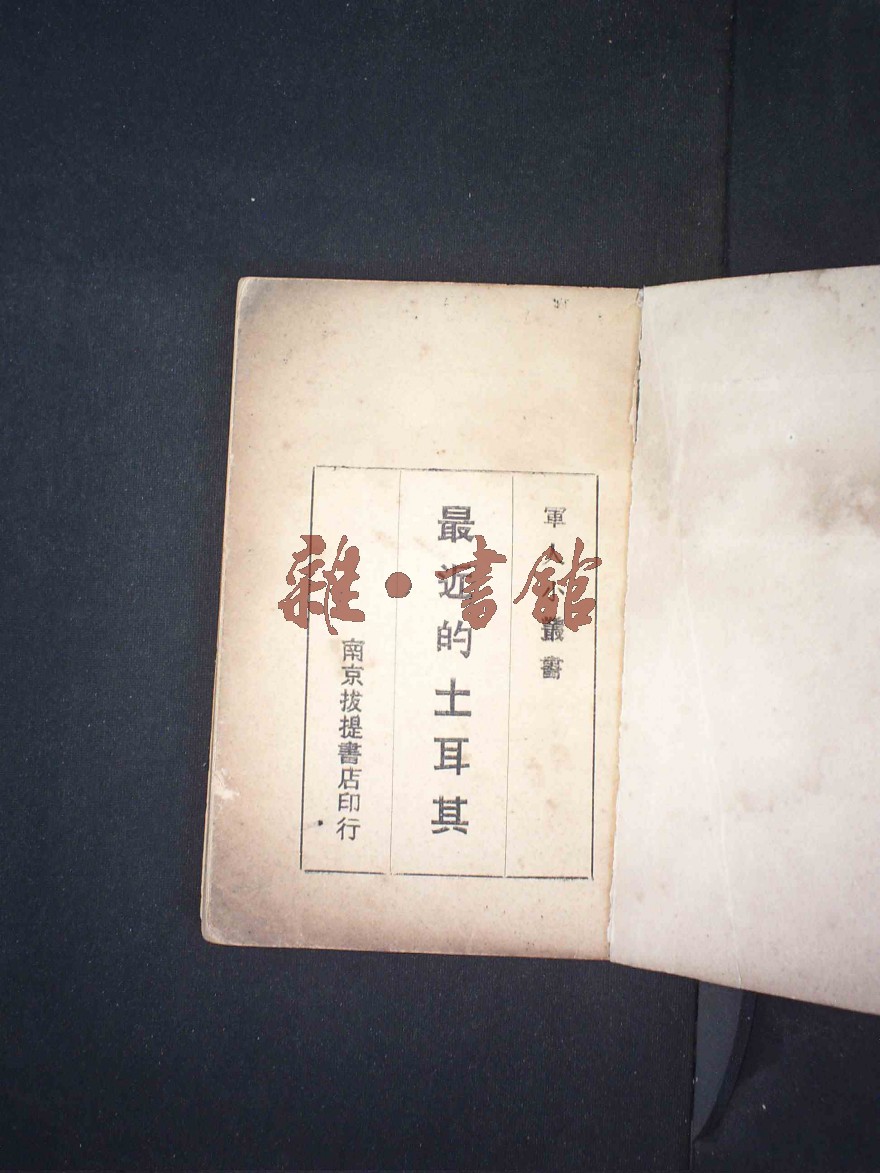 軍人小叢書
最近的土耳其
南京拔提書店印行
雜·書館